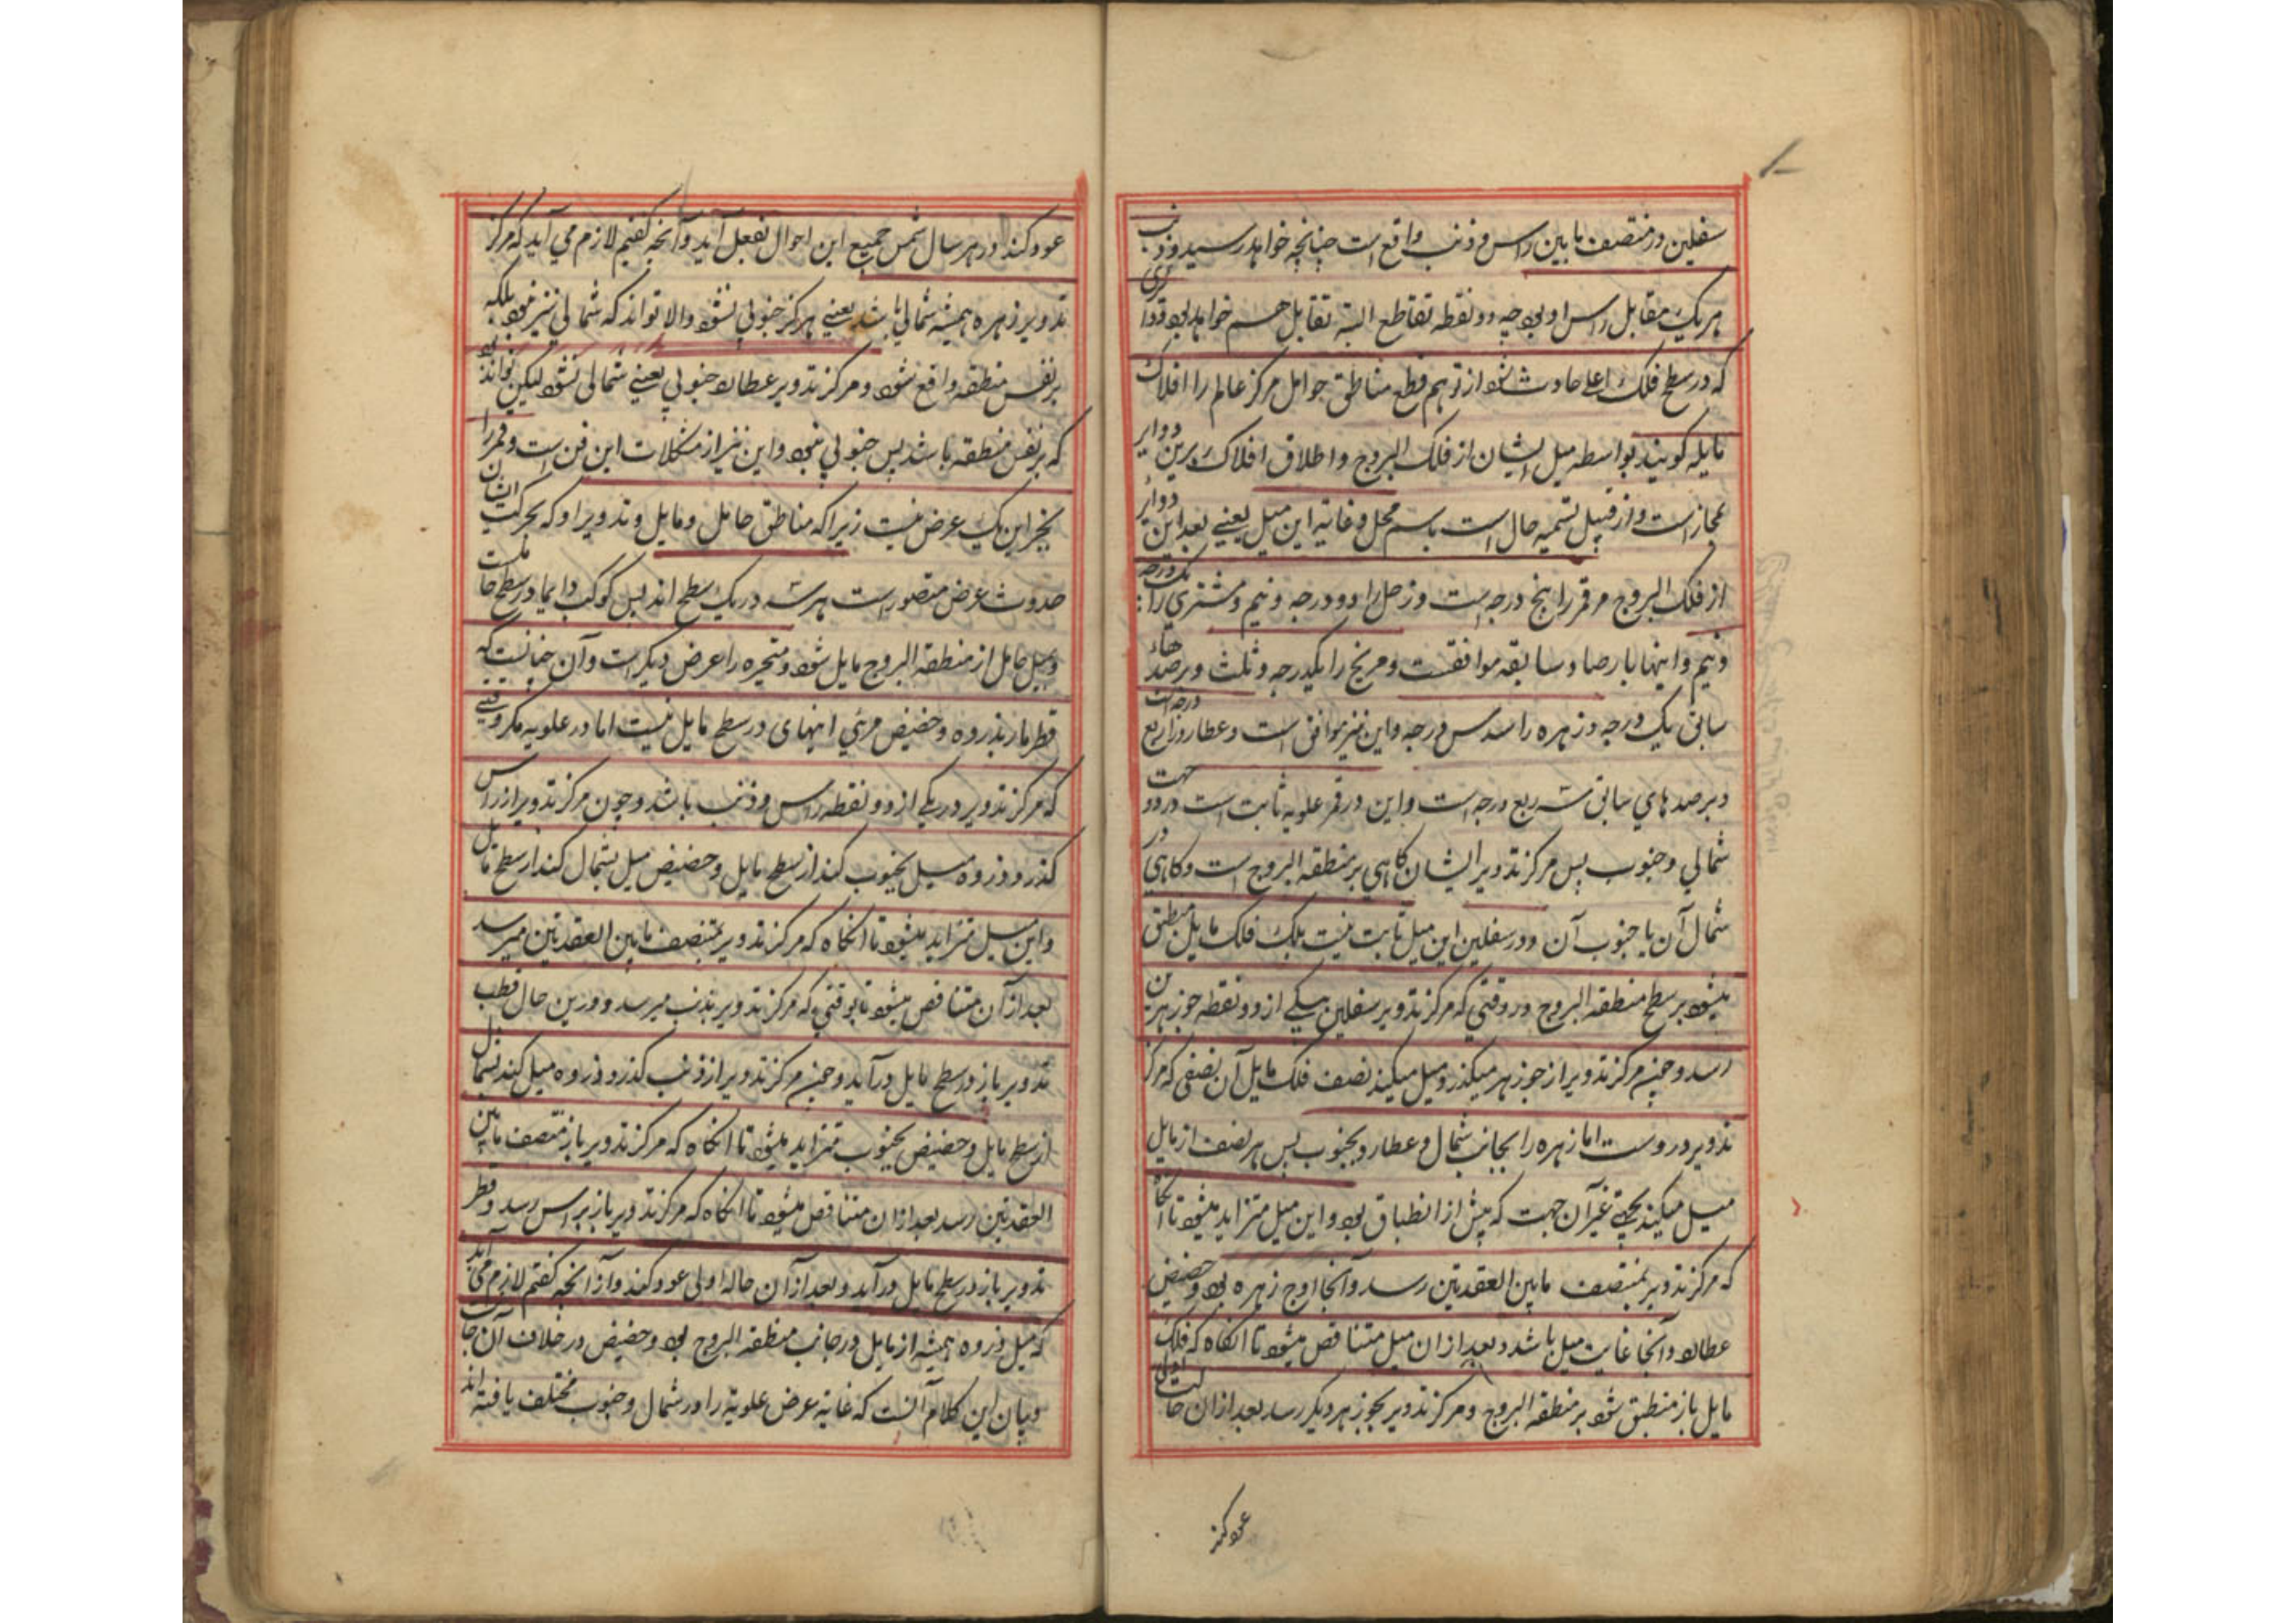 سفلین در منتصف مابین راس و ذنب واقع است چنانچه خواهد رسید و ذنب
هر یک مقابل راس او بود چه دو نقطه تقاطع البته تقابل هم خواهد بود و دوایری
که در سطح فلک اعلی حادث شود از توهم قطع مناطق حوامل مرکز عالم را افلاک
مایله گویند بواسطه میل ایشان از فلک البروج و اطلاق افلاک برین دوایر
مجاز است و از قبیل تسمیه حال است باسم محل و غایة این میل یعنی بعد این دوایر
از فلک البروج مر قمر را پنج درجه است و زحل را دو درجه و نیم و مشتری را یک درجه
و نیم و اینها بارصاد سابقه موافقست و مریخ را یکدرجه و ثلث و برصدهاء
سابق یک درجه و زهره را سدس درجه و این نیز موافق است و عطارد را ربع درجه است
و برصدهای سابق سه ربع درجه است و این در قمر و علویه ثابت است در دو جهت
شمالی و جنوب پس مرکز تدویر ایشان کاهی بر منطقه البروج است و کاهی در
شمال آن یا جنوب آن و در سفلین این میل ثابت نیست بلکه فلک مایل منطبق
میشود بر سطح منطقه البروج در وقتی که مرکز تدویر سفلین بیکی از دو نقطه جوزهرین
رسد و چون مرکز تدویر از جوزهر میکذرد میل میکند نصف فلک مایل آن نصفی که مرکز
تدویر دروست اما زهره را بجانب شمال و عطارد بجنوب پس هر نصف از مایل
میل میکند بجهتی غیر آن جهت که پیش از انطباق بود و این میل متزاید میشود تا انکاه
که مرکز تدویر بمنتصف مابین العقدتین رسد و آنجا اوج زهره بود و حضیض
عطارد و آنجا غایت میل باشد و بعد ازان میل متناقص میشود تا انکاه که فلک
مایل باز منطبق شود بر منطقه البروج و مرکز تدویر بجوزهر دیکر رسد بعد ازان حالت اولی
عود کند
عود کند و در هر سال شمس جمیع این احوال بفعل آید و آنچه کفتیم لازم می آید که مرکز
تدویر زهره همیشه شمالی باشد یعنی هرکز جنوبی نشود والا تواند که شمالی نیز نبود بلکه
بر نفس منطقه واقع شود و مرکز تدویر عطارد جنوبی یعنی شمالی نشود لیکن تواند بود
که بر نفس منطقه باشد پس جنوبی نبود و این نیز از مشکلات این فن است و قمر را
بجز این یک عرض نیست زیرا که مناطق حامل و مایل و تدویر او که بحرکت ایشان
حدوث عرض متصور است هر سه در یک سطح اند پس کوکب دایما در سطح حاملست
و بمیل حامل از منطقه البروج مایل شود و متحیره را عرض دیکر است و آن چنانست که
قطر مار بذروه و حضیض مرئی اینها ی در سطح مایل نیست اما در علویه مکر وقتی
که مرکز تدویر در یکی از دو نقطه راس و ذنب باشد و چون مرکز تدویر از راس
کذرد ذروه میل بجنوب کند از سطح مایل و حضیض میل بشمال کند از سطح مایل
و این میل متزاید میشود تا انکاه که مرکز تدویر بمنتصف مابین العقدتین میرسد
بعد از آن متناقص میشود تا بوقتی که مرکز تدویر بذنب میرسد و درین حال قطب
تدویر باز در سطح مایل درآید و چون مرکز تدویر از ذنب کذرد ذروه میل کند بشمال
از سطح مایل و حضیض بجنوب متزاید میشود تا انکاه که مرکز تدویر باز منتصف مابین
العقدتین رسد بعد ازان متناقص میشود تا انکاه که مرکز تدویر باز براس رسد و قطر
تدویر باز در سطح مایل درآید و بعد از آن حاله اولی عود کند و از انچه کفتم لازم می آید
که میل ذروه همیشه از مایل در جانب منطقه البروج بود و حضیض در خلاف آن جانب
و بیان این کلام آنست که غایة عرض علویة را در شمال و جنوب مختلف یافته اند